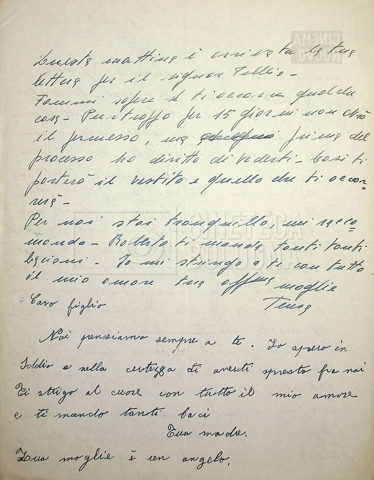 Questa mattina è arrivata la tua
lettera per il signor Tullio -
Fammi sapere se ti occorre qualche
cosa - Purtroppo per 15 giorni non
il permesso, ma prima del
processo ho diritto di vederti - Così ti
porterò il vestito e quello che ti occor-
rerà -
Per noi stai tranquillo, mi racco-
mando - Roberto ti manda tanti tanti
bacioni - Io mi stringo a te con tutto
il mio amore tua moglie
Caro figlio
Noi pensiamo sempre a te. Io spero in
Iddio e nella certezza di averti presto fra noi
Ti stringo al cuore con tutto il mio amore
e ti mando tanti baci
Tua madre.
Tua moglie è un angelo.